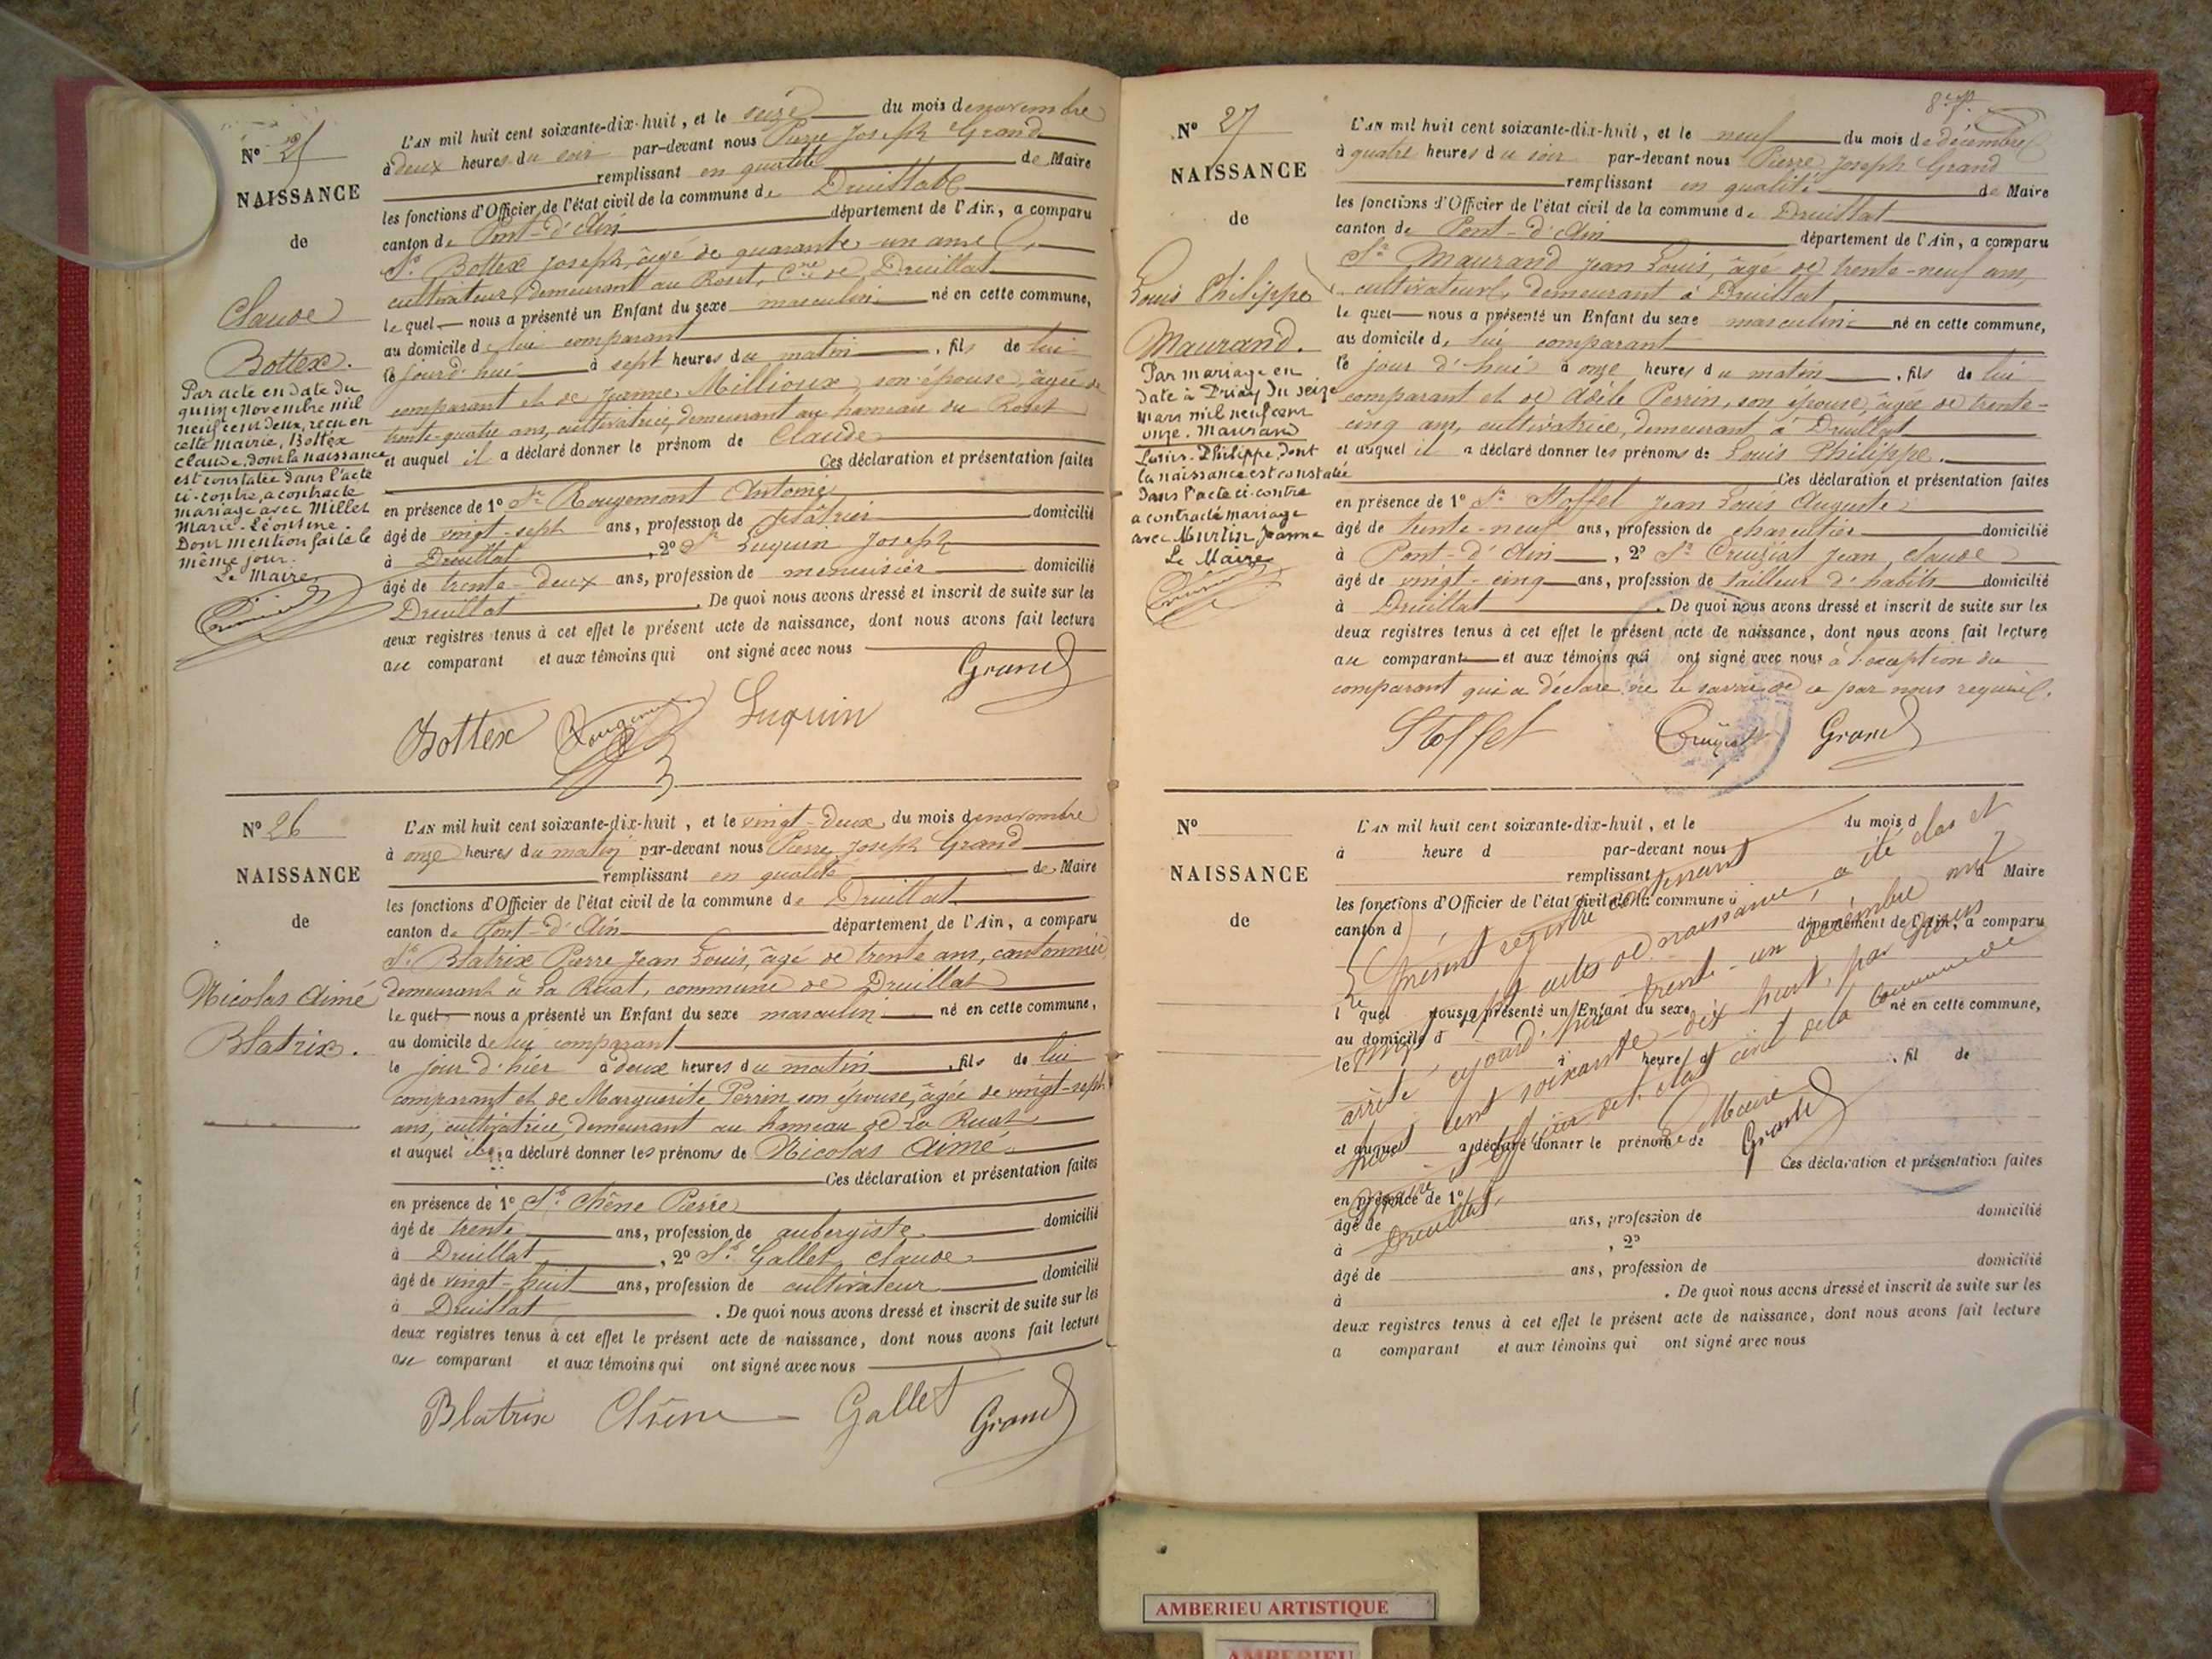 N° 25
NAISSANCE
de
Claude
Bottex.
Par acte en date du
quinze Novembre mil
neuf cent deux, reçu en
cette mairie, Bottex
Claude, dont la naissance
est constatée dans l'acte
ci-contre, a contracté
mariage avec Millet
Marie-Léontine.
Dont mention faite le
même jour.
Le Maire,
L'AN mil huit cent soixante-dix-huit, et le seize du mois de novembre
à deux heures du soir par-devant nous Pierre Joseph Grand
remplissant en qualité de Maire
les fonctions d'Officier de l'état civil de la commune de Druillat
canton de Pont-d'Ain département de l'Ain, a comparu
Sr. Bottex Joseph, âgé de quarante-un ans
cultivateur, demeurant au Roset, Cne de Druillat
le quel nous a présenté un Enfant du sexe masculin né en cette commune,
au domicile de lui comparant
le jourd'hui à sept heures du matin, fils de lui
comparant et de Jeanne Millioux son épouse, âgée de
trente-quatre ans, cultivatrice, demeurant au hameau du Roset
et auquel il a déclaré donner le prénom de Claude
Ces déclaration et présentation faites
en présence de 1° Sr. Rougemont Antoine
âgé de vingt-sept ans, profession de plâtrier domicilié
à Druillat, 2° Sr Luquin Joseph
âgé de trente-deux ans, profession de menuisier domicilié
Druillat. De quoi nous avons dressé et inscrit de suite sur les
deux registres tenus à cet effet le présent acte de naissance, dont nous avons fait lecture
au comparant et aux témoins qui ont signé avec nous
Grand
Bottex Rougemont Luquin
N° 26
NAISSANCE
de
Nicolas Aimé
Blatrix.
L'AN mil huit cent soixante-dix-huit, et le vingt-deux du mois de novembre
à onze heures du matin par-devant nous Pierre Joseph Grand
remplissant en qualité de Maire
les fonctions d'Officier de l'état civil de la commune de Druillat
canton de Pont-d'Ain département de l'Ain, a comparu
Sr. Blatrix Pierre Jean Louis, âgé de trente ans, cantonnier
demeurant à La Ruat, commune de Druillat
le quel nous a présenté un Enfant du sexe masculin né en cette commune,
au domicile de lui comparant
le jour d'hier à deux heures du matin, fils de lui
comparant et de Marguerite Perrin son épouse, âgée de vingt-sept
ans, cultivatrice, demeurant au hameau de La Ruat
et auquel il a déclaré donner les prénoms de Nicolas Aimé
Ces déclaration et présentation faites
en présence de 1° Sr. Chêne Pierre
âgé de trente ans, profession de aubergiste domicilié
à Druillat, 2° Sr. Gallet Claude
âgé de vingt-huit ans, profession de cultivateur domicilié
à Druillat. De quoi nous avons dressé et inscrit de suite sur les
deux registres tenus à cet effet le présent acte de naissance, dont nous avons fait lecture
au comparant et aux témoins qui ont signé avec nous
Blatrix Chêne Gallet Grand
N° 27
NAISSANCE
de
Louis Philippe
Maurand.
Par mariage en
date à Priay du seize
mars mil neuf cent
onze. Maurand
Louis-Philippe, dont
la naissance est constatée
dans l'acte ci-contre
a contracté mariage
avec Murtin Jeanne
Le Maire
L'AN mil huit cent soixante-dix-huit, et le neuf du mois de décembre
à quatre heures du soir par-devant nous Pierre Joseph Grand
remplissant en qualité de Maire
les fonctions d'Officier de l'état civil de la commune de Druillat
canton de Pont-d'Ain département de l'Ain, a comparu
Sr. Maurand Jean Louis, âgé de trente-neuf ans,
cultivateur, demeurant à Druillat
le quel nous a présenté un Enfant du sexe masculin né en cette commune,
au domicile de lui comparant
le jour d'hui à onze heures du matin, fils de lui
comparant et de Adèle Perrin, son épouse, âgée de trente-
cinq ans, cultivatrice, demeurant à Druillat
et auquel il a déclaré donner les prénoms de Louis Philippe.
Ces déclaration et présentation faites
en présence de 1° Sr. Stoffel Jean Louis Auguste
âgé de trente-neuf ans, profession de charcutier domicilié
à Pont-d'Ain, 2° Sr. Cruiziat Jean Claude
âgé de vingt-cinq ans, profession de tailleur d'habits domicilié
à Druillat. De quoi nous avons dressé et inscrit de suite sur les
deux registres tenus à cet effet le présent acte de naissance, dont nous avons fait lecture
au comparant et aux témoins qui ont signé avec nous à l'exception du
comparant qui a déclaré ne le savoir de ce par nous requis.
Stoffel Cruiziat Grand
N°
NAISSANCE
de
L'AN mil huit cent soixante-dix-huit, et le du mois d
à heure d par-devant nous
remplissant d Maire
les fonctions d'Officier de l'état civil de la commune d
canton d département de l'Ain, a comparu
l quel nous a présenté un Enfant du sexe né en cette commune,
au domicile d
le à heure d . fil de
et auquel a déclaré donner le prénom de
Ces déclaration et présentation faites
en présence de 1°
âgé de ans, profession de domicilié
à , 2°
âgé de ans, profession de domicilié
à . De quoi nous avons dressé et inscrit de suite sur les
deux registres tenus à cet effet le présent acte de naissance, dont nous avons fait lecture
a comparant et aux témoins qui ont signé avec nous
Le présent registre contenant
vingt sept actes de naissance, a été clos et
arrêté cejourd'hui trente-un décembre mil
huit cent soixante-dix huit, par nous
Maire, officier de l'état civil de la commune de
Druillat.
Le Maire
Grand
AMBERIEU ARTISTIQUE
AMBERIEU